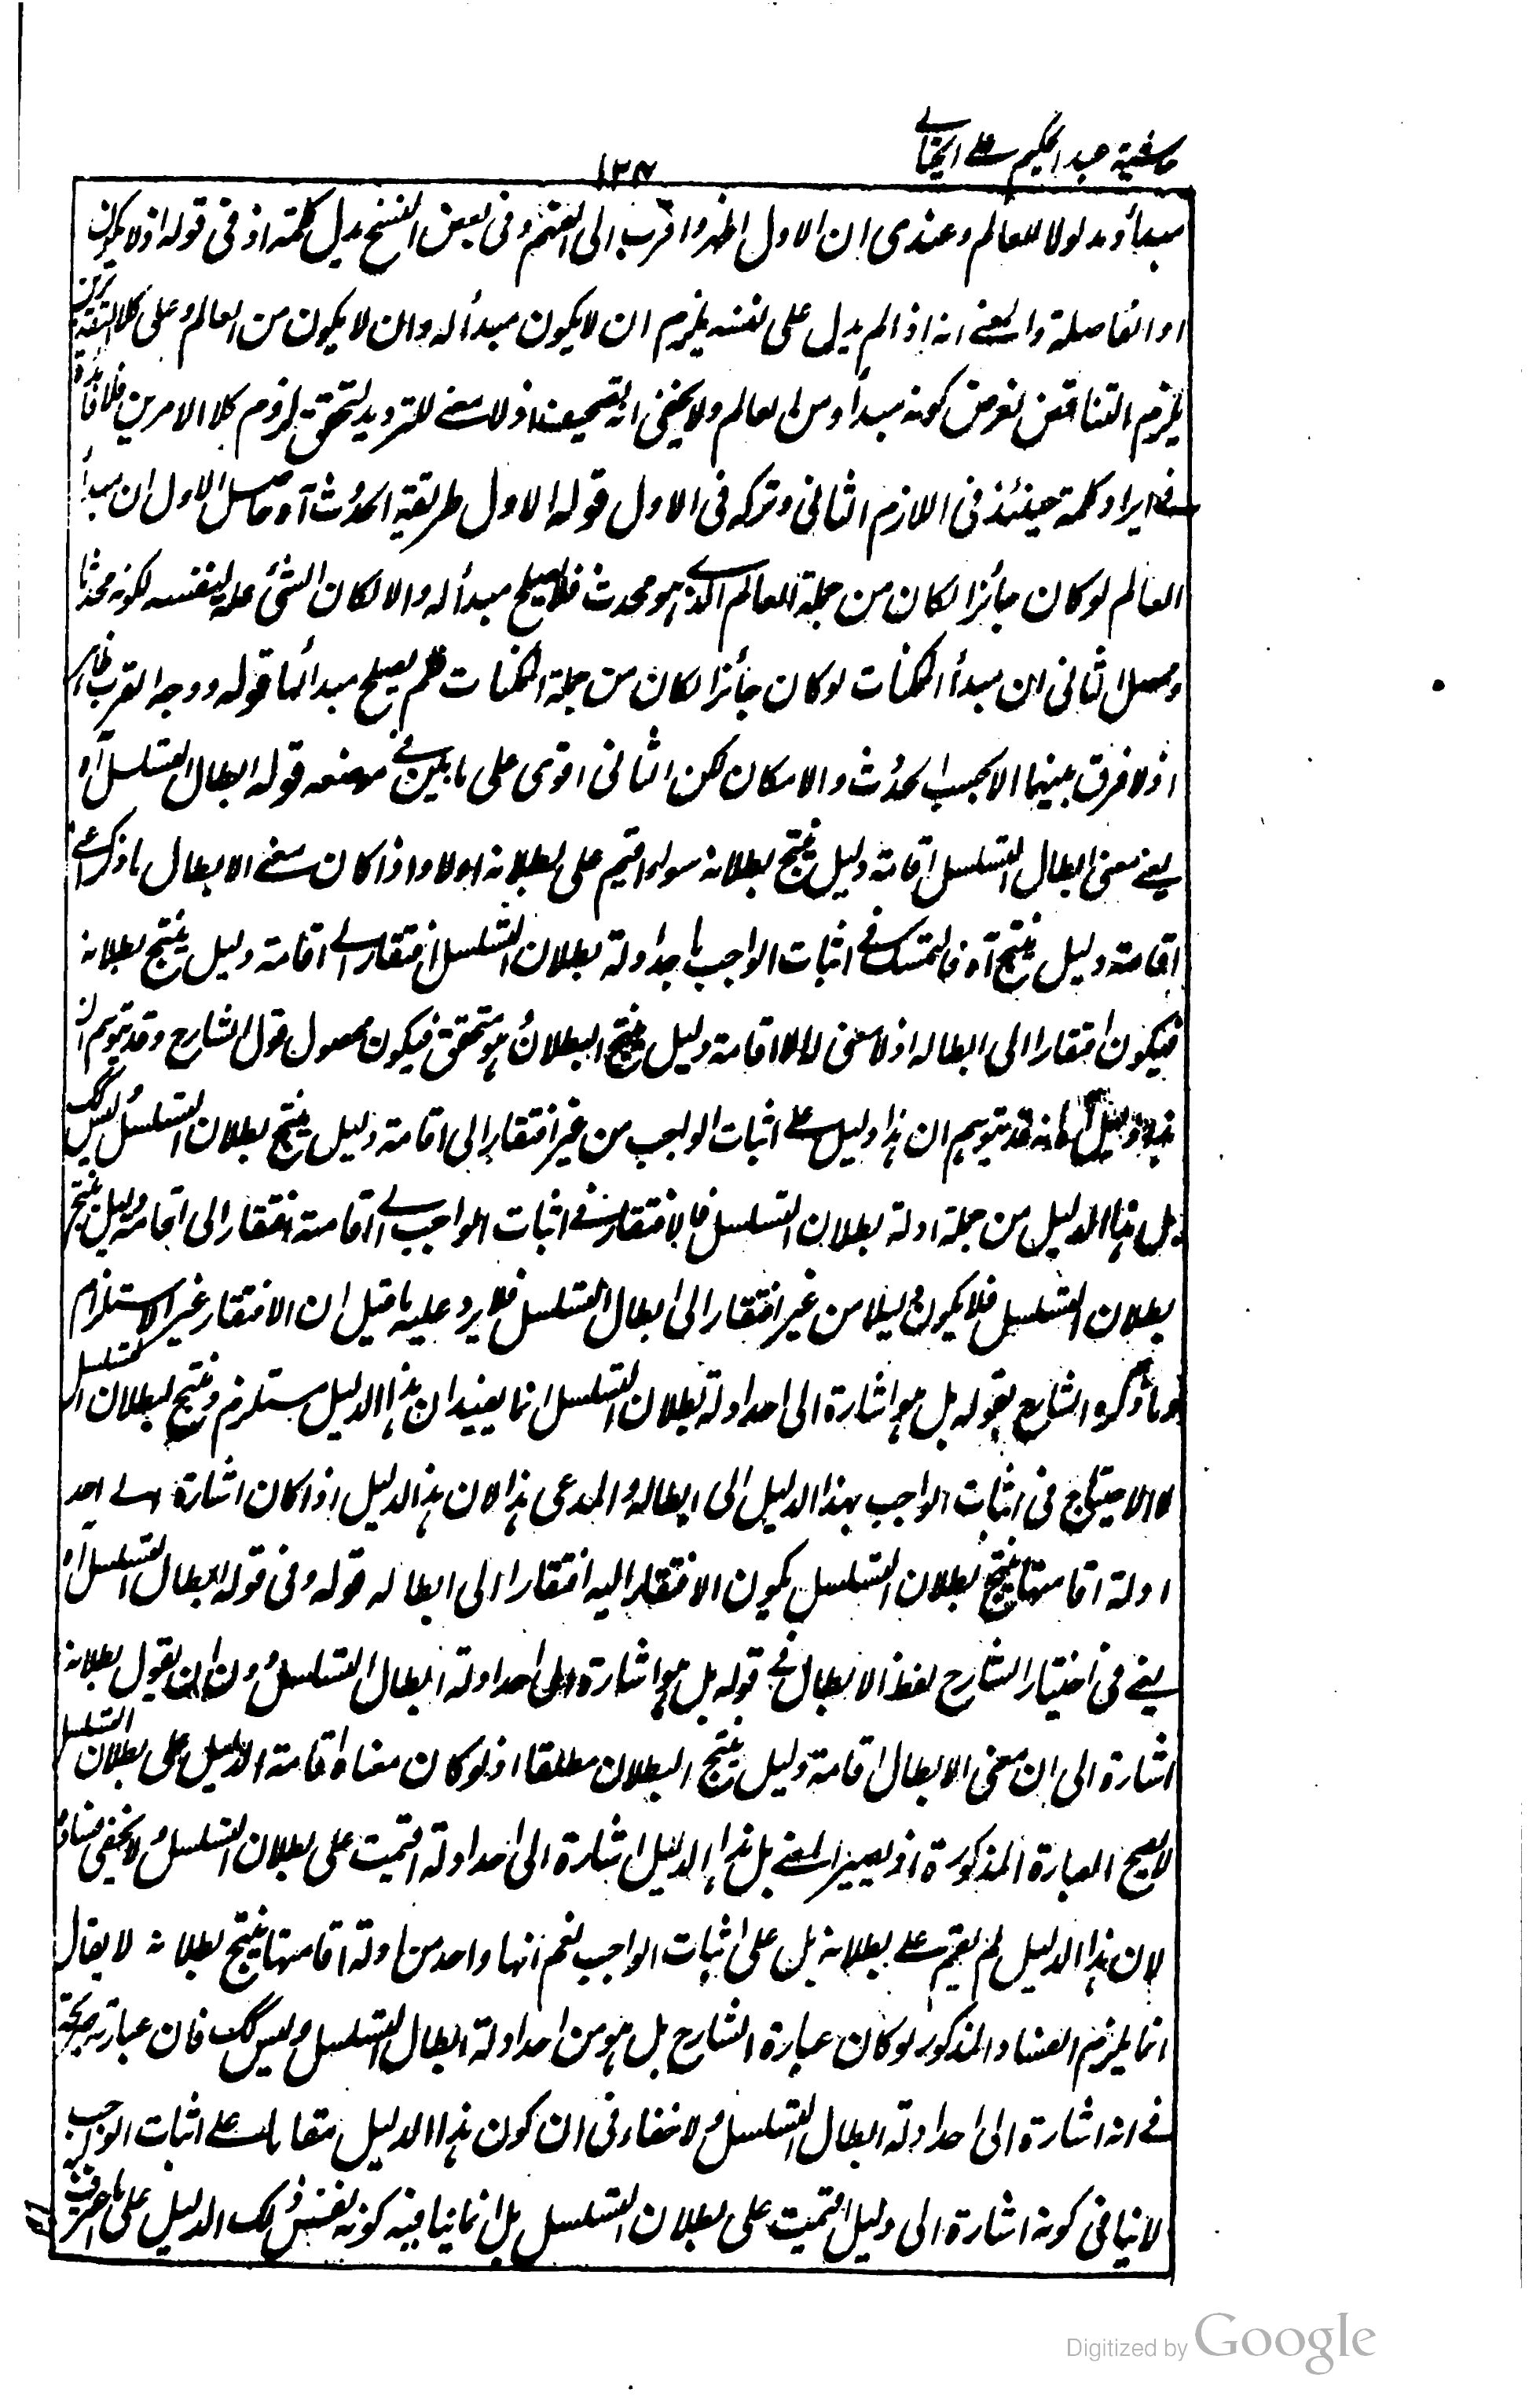 حاشية عبد الحكيم على الخيالي
١٣٧
مبدأ ومدلولا للعالم وعندى ان الاول اظهر واقرب الى الفهم وفى بعض النسخ بدل كلمة اذ فى قوله اذ لا يكون
او الفاصلة والمعنى انه اذا لم يدل على نفسه يلزم ان لا يكون مبدأ له وان لا يكون من العالم وعلى كلا التقديرين
يلزم التناقض لفرض كونه مبدأ ومن العالم ولا يخفى انه تصحيف اذ لا معنى للترديد لتحقق لزوم كلا الامرين فلا فائدة
فى ايراد كلمة حينئذ فى اللازم الثانى وتركه فى الاول قوله الاول طريقة الحدوث آه حاصل الاول ان مبدأ
العالم لو كان جائزا لكان من جملة العالم الذى هو محدث فلا يصلح مبدأ له والا لكان الشئ علة لنفسه لكونه محدثا
وحاصل الثانى ان مبدأ الممكنات لو كان جائزا لكان من جملة الممكنات فلم يصلح مبدأ لها قوله ووجه القرب ظاهر
اذ لا فرق بينهما الا بحسب الحدوث والامكان لكن الثانى اقوى على ما بين فى موضعه قوله ابطال التسلسل آه
يعنى معنى ابطال التسلسل اقامة دليل ينتج بطلانه سواء اقيم على بطلانه اولا واذا كان معنى الابطال ما ذكر اعنى
اقامة دليل ينتج آه فالتمسك فى اثبات الواجب باحد ادلة بطلان التسلسل افتقار الى اقامة دليل ينتج بطلانه
فيكون افتقارا الى ابطاله اذ لا معنى له الا اقامة دليل ينتج البطلان وهو متحقق فيكون محصول قول الشارح وقد يتوهم ان
هذا دليل آه انه قد يتوهم ان هذا دليل على اثبات الواجب من غير افتقار الى اقامة دليل ينتج بطلان التسلسل وليس كك
بل هذا الدليل من جملة ادلة بطلان التسلسل فالافتقار فى اثبات الواجب الى اقامته افتقار الى اقامة دليل ينتج
بطلان التسلسل فلا يكون دليلا من غير افتقار الى ابطال التسلسل فلا يرد عليه ما قيل ان الافتقار غير الاستلزام
وما ذكره الشارح بقوله بل هو اشارة الى احد ادلة بطلان التسلسل انما يفيد ان هذا الدليل مستلزم ومنتج لبطلان التسلسل
لا الاحتياج فى اثبات الواجب بهذا الدليل الى ابطاله والمدعى هذا لان هذا الدليل اذا كان اشارة الى احد
ادلة اقامتها ينتج بطلان التسلسل يكون الافتقار اليه افتقارا الى ابطاله قوله وفى قوله ابطال التسلسل آه
يعنى فى اختيار الشارح لفظ الابطال فى قوله بل هو اشارة الى احد ادلة ابطال التسلسل دون ان يقول بطلانه
اشارة الى ان معنى الابطال اقامة دليل ينتج البطلان مطلقا اذ لو كان معناه اقامة الدليل على بطلان التسلسل
لا يصح العبارة المذكورة اذ يصير المعنى بل هذا الدليل اشارة الى احد ادلة اقيمت على بطلان التسلسل ولا يخفى فساده
لان هذا الدليل لم يقم على بطلانه بل على اثبات الواجب نعم انها واحد من ادلة اقامتها ينتج بطلانه لا يقال
انما يلزم الفساد المذكور لو كان عبارة الشارح بل هو من احد ادلة ابطال التسلسل وليس كك فان عبارته صريحة
فى انه اشارة الى احد ادلة ابطال التسلسل ولا خفاء فى ان كون هذا الدليل مقاما على اثبات الواجب
لا ينافى كونه اشارة الى دليل اقيمت على بطلان التسلسل بل انما ينافيه كونه نفس ذلك الدليل على ما اعترف
Digitized by Google